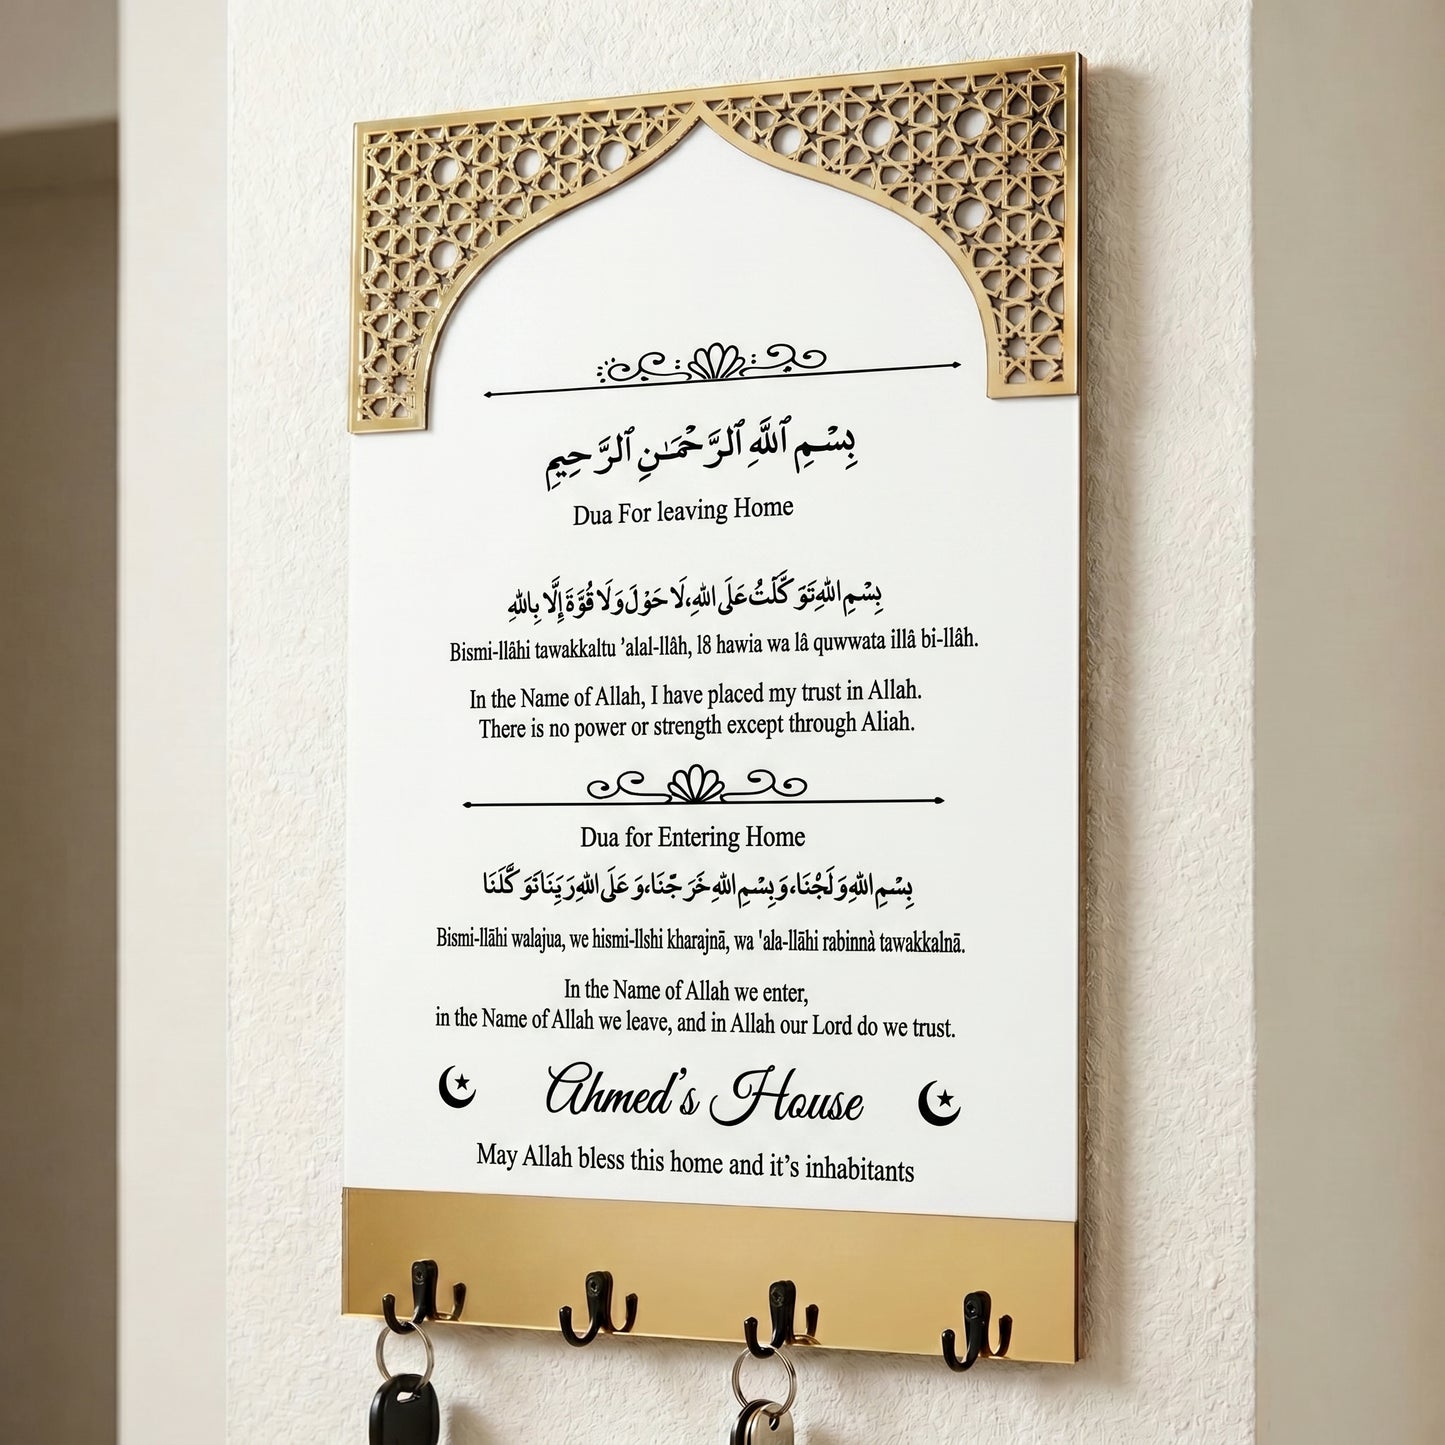 بِسْمِ ٱللَّهِ ٱلرَّحْمَـٰنِ ٱلرَّحِيمِ
Dua For leaving Home
بِسْمِ اللهِ تَوَكَّلْتُ عَلَى اللهِ، لَا حَوْلَ وَلَا قُوَّةَ إِلَّا بِاللهِ
Bismi-llâhi tawakkaltu ’alal-llâh, l8 hawia wa lâ quwwata illâ bi-llâh.
In the Name of Allah, I have placed my trust in Allah.
There is no power or strength except through Aliah.
Dua for Entering Home
بِسْمِ اللهِ وَلَجْنَا، وَبِسْمِ اللهِ خَرَجْنَا، وَعَلَى اللهِ رَبِّنَا تَوَكَّلْنَا
Bismi-llāhi walajua, we hismi-llshi kharajnā, wa 'ala-llāhi rabinnà tawakkalnā.
In the Name of Allah we enter,
in the Name of Allah we leave, and in Allah our Lord do we trust.
Ahmed’s House
May Allah bless this home and it’s inhabitants